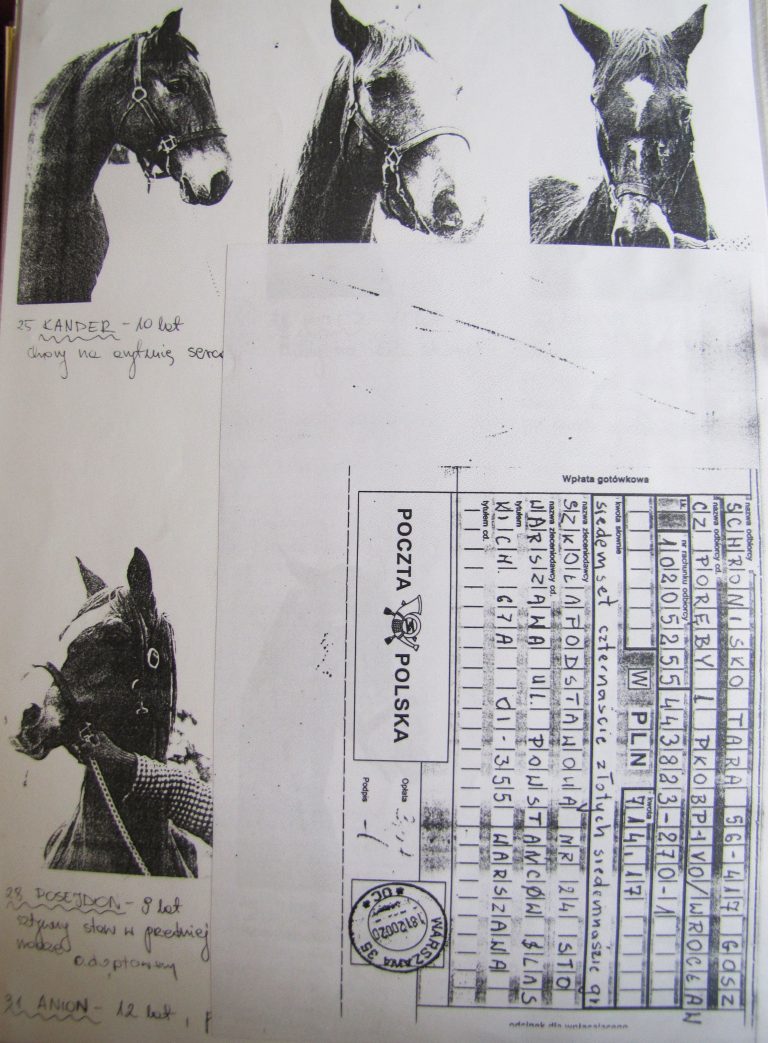 25 KANDER - 10 lat
chory na arytmię serca
28 POSEJDON - 9 lat
sztywny staw w przedniej
nodze
adoptowany
31 ANION - 12 lat,
Wpłata gotówkowa
nazwa odbiorcy
SCHRONISKO TARA 56-417 GOSZ
nazwa odbiorcy cd.
CZ PORĘBY 1 PKOBP-IVO/WROCŁAW
nr rachunku odbiorcy
10205255443883-270-1
W PLN
kwota
714,17
kwota słownie
siedemset czternaście złotych siedemnaście gr
nazwa zleceniodawcy
SZKOŁA PODSTAWOWA NR 24 STO
nazwa zleceniodawcy cd.
WARSZAWA UL. POWSTAŃCÓW ŚLĄS
tytułem
KICH 67A 01-355 WARSZAWA
tytułem cd.
POCZTA POLSKA
Opłata
Podpis
WARSZAWA 35
odcinek dla wpłacającego